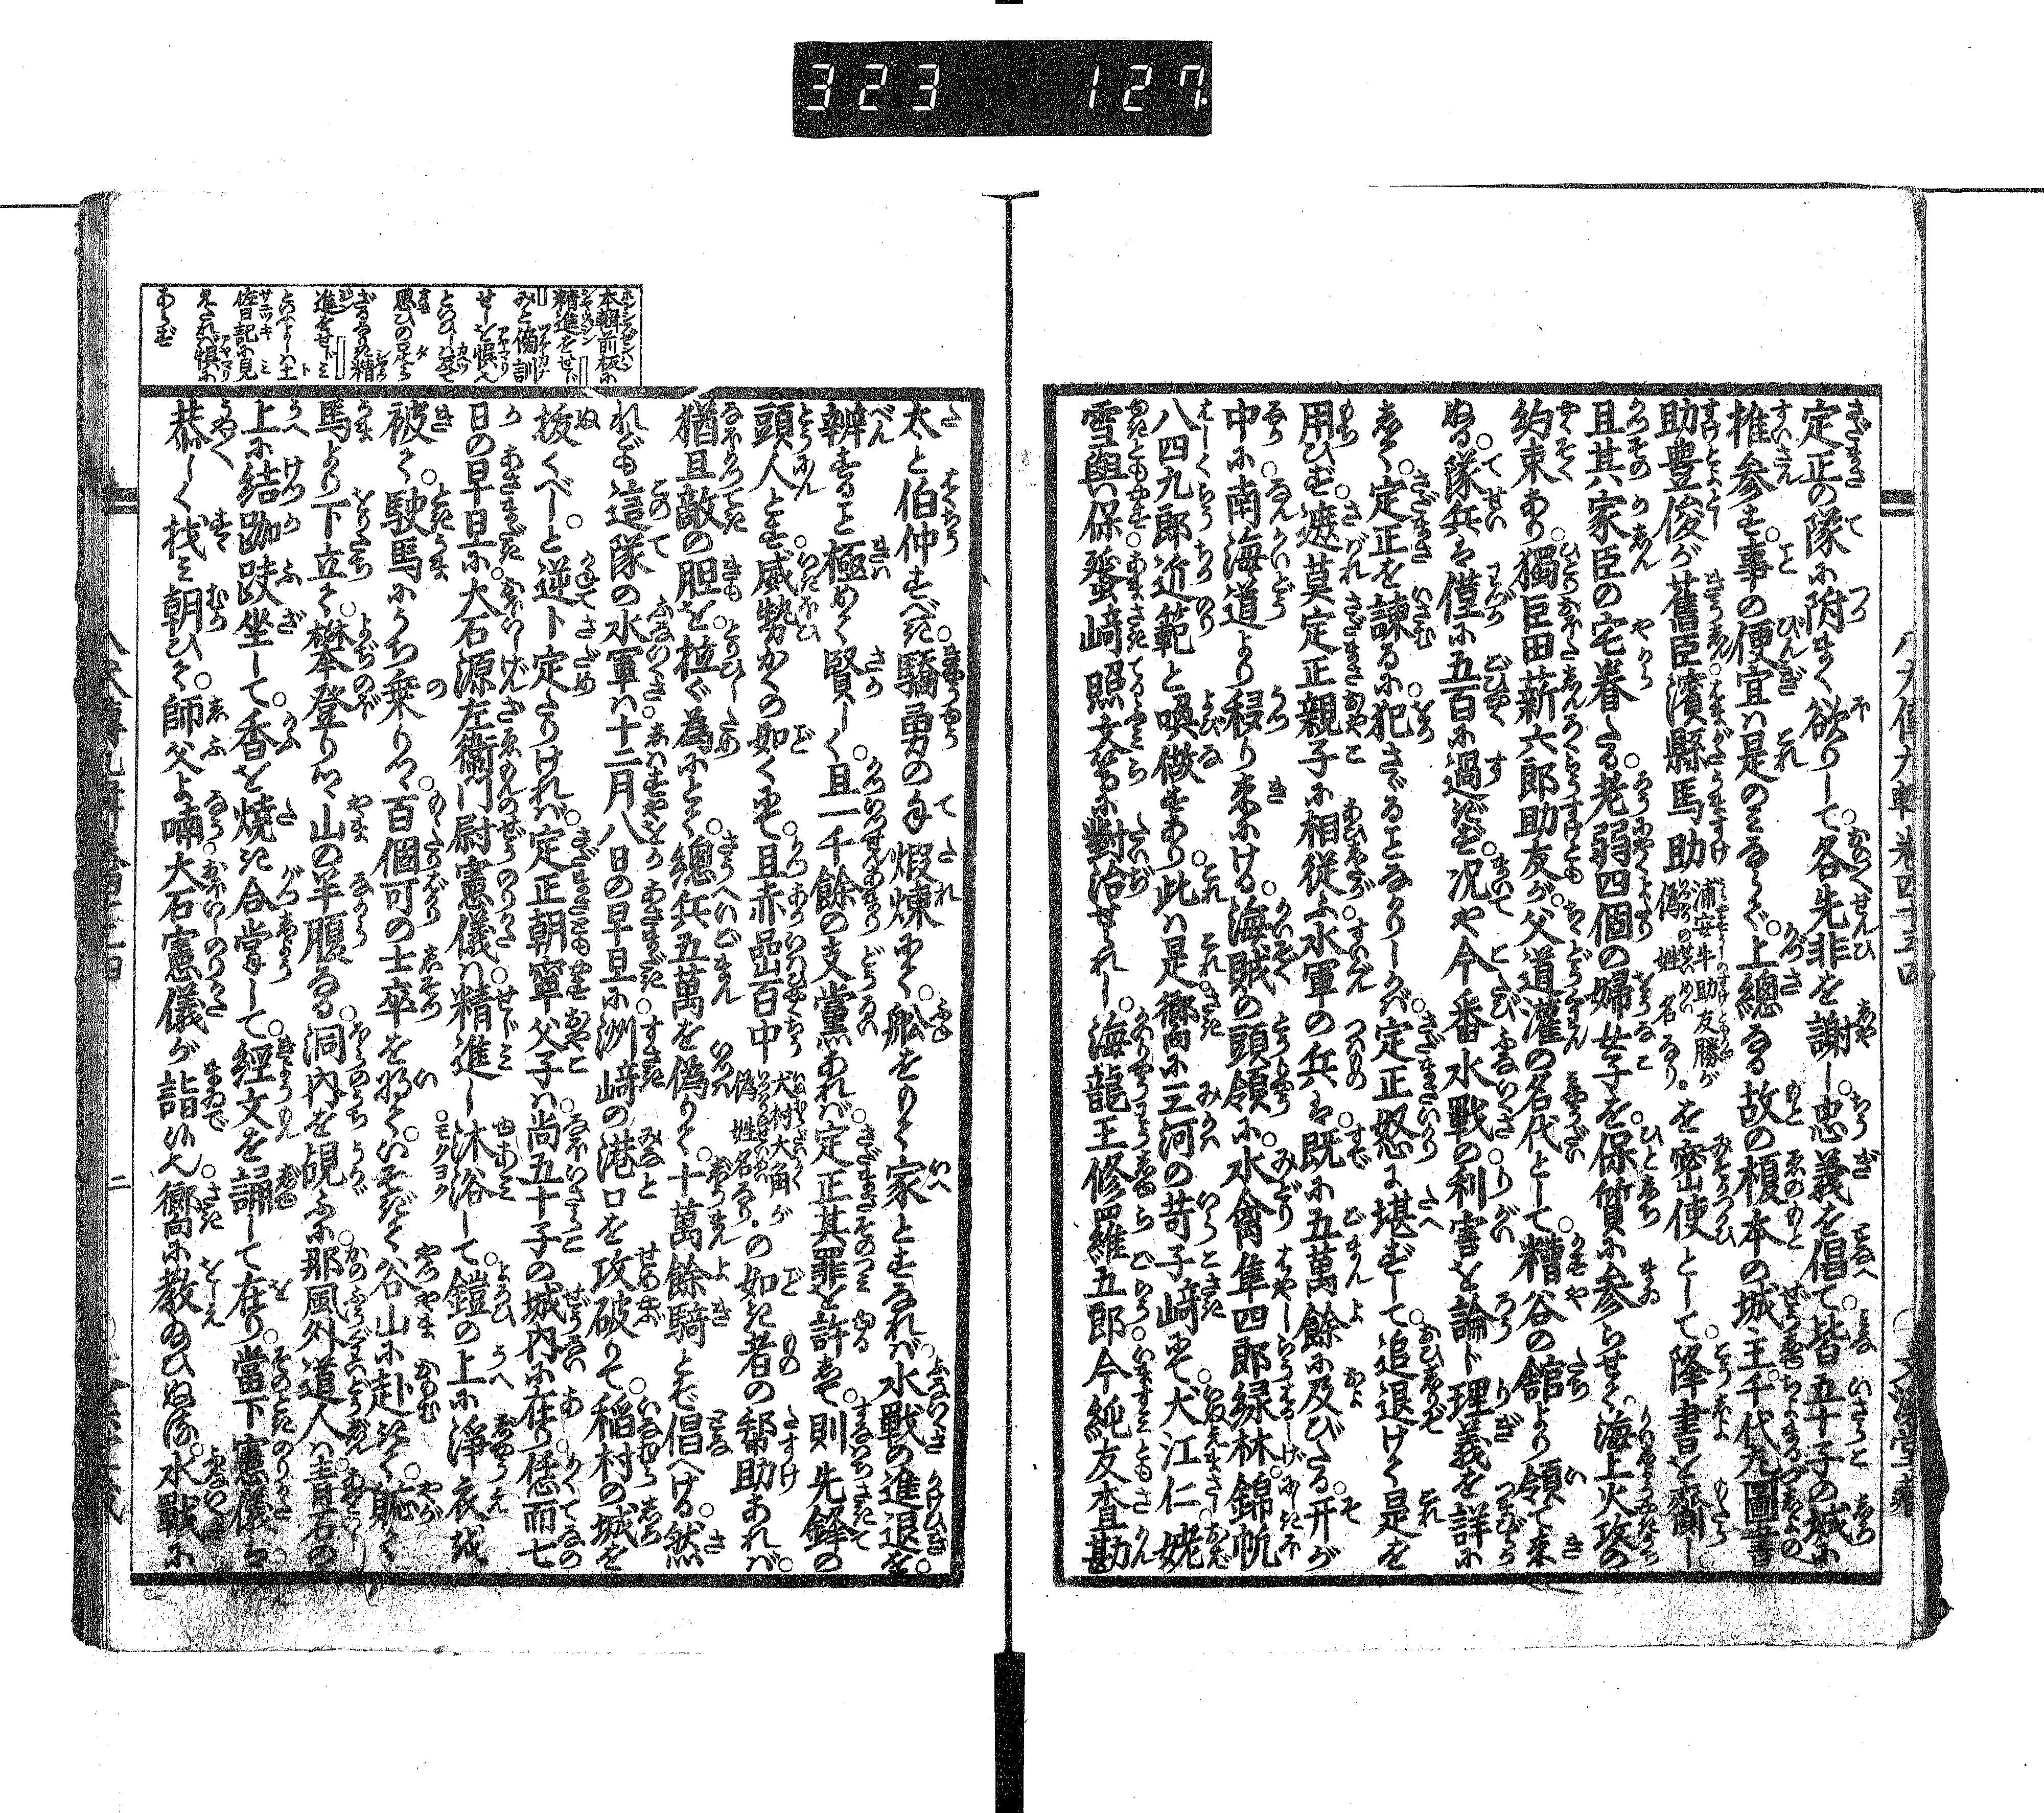 323 127
定正の隊に附まく欲りして各先非を謝し忠義を倡て皆五十子の城に
推参す事の便宜は是のみならず上總なる故の榎本の城主千代丸圖書
助豊俊が舊臣濱縣馬助浦安牛助友勝が偽姓名なり を密使として降書を齎し
且其家臣の宅眷たる老弱四個の婦女子を保質に参らせて海上火攻の
約束あり獨巨田薪六郎助友が父道灌の名代として糟谷の舘より領て来
ぬる隊兵は僅に五百に過ぎず况や今番水戰の利害を論じ理義を詳に
して定正を諫るに犯さゞることなかりしかば定正怒に堪ずして追退けて是を
用ひず遮莫定正親子に相從ふ水軍の兵は既に五萬餘に及びたる开が
中に南海道より稷り来にける海賊の頭領に水禽隼四郎緑林錦帆
八四九郎近範と喚做すあり此は是嚮に三河の苛子﨑にて犬江仁姥
雪與保蜑﨑照文等に對治せられし海龍王修羅五郎今純友査勘
太と伯仲すべき驕勇の手煆煉にて舩をもて家とすなれば水戰の進退を
辨ずること極めて賢しく且一千餘の支黨あれば定正其罪を許して則先鋒の
頭人とす威勢かくの如くにて且赤嵒百中犬村大角が偽姓名なり の如き者の幇助あれば
猶且敵の胆を拉ぐ為にとて總兵五萬を偽りて十萬餘騎とぞ倡へける然
れども這隊の水軍は十二月八日の早旦に洲﨑の港口を攻破りて稲村の城を
抜くべしと逆ト定たりければ定正朝寧父子は尚五十子の城内に在り恁而七
日の早旦に大石源左衞門尉憲儀は精進し沐浴して鎧の上に淨衣を
被て駛馬にうち乗りつゝ百個可の士卒を將ていそぎて谷山に赴きて軈て
馬より下立て攀登りつゝ山の半腹なる洞内を覘ふに那風外道人は青石の
上に結跏趺坐して香を焼き合掌して經文を誦して在り當下憲儀は
恭しく找み朝ひて師父よ喃大石憲儀が詣来ぬ嚮に教給ひぬる水戰に
本輯前板に
精進をせじ
みと傍訓
せしを悞也
といひしは反て
思ひの足ら
ざるなり精
進をせじミ
といふよしは土
佐日記に見
えたれば悞に
あらず